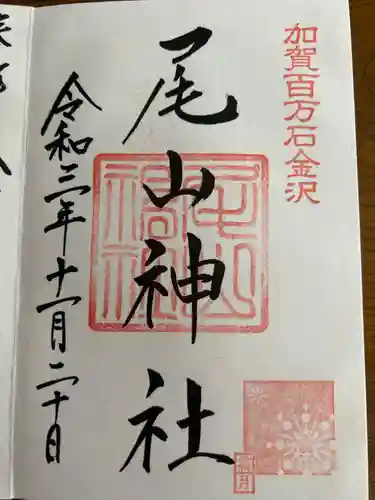 加賀百万石金沢
尾山神社
尾山神社
令和三年十一月二十日